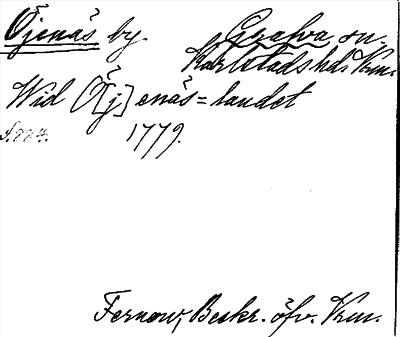 Öjenäs by. Grava sn.
Karlstads hd. Vrm.
Wid Ö[j]enäs=landet
S. 774. 1779.
Fernow, Beskr. öfv. Vrm.